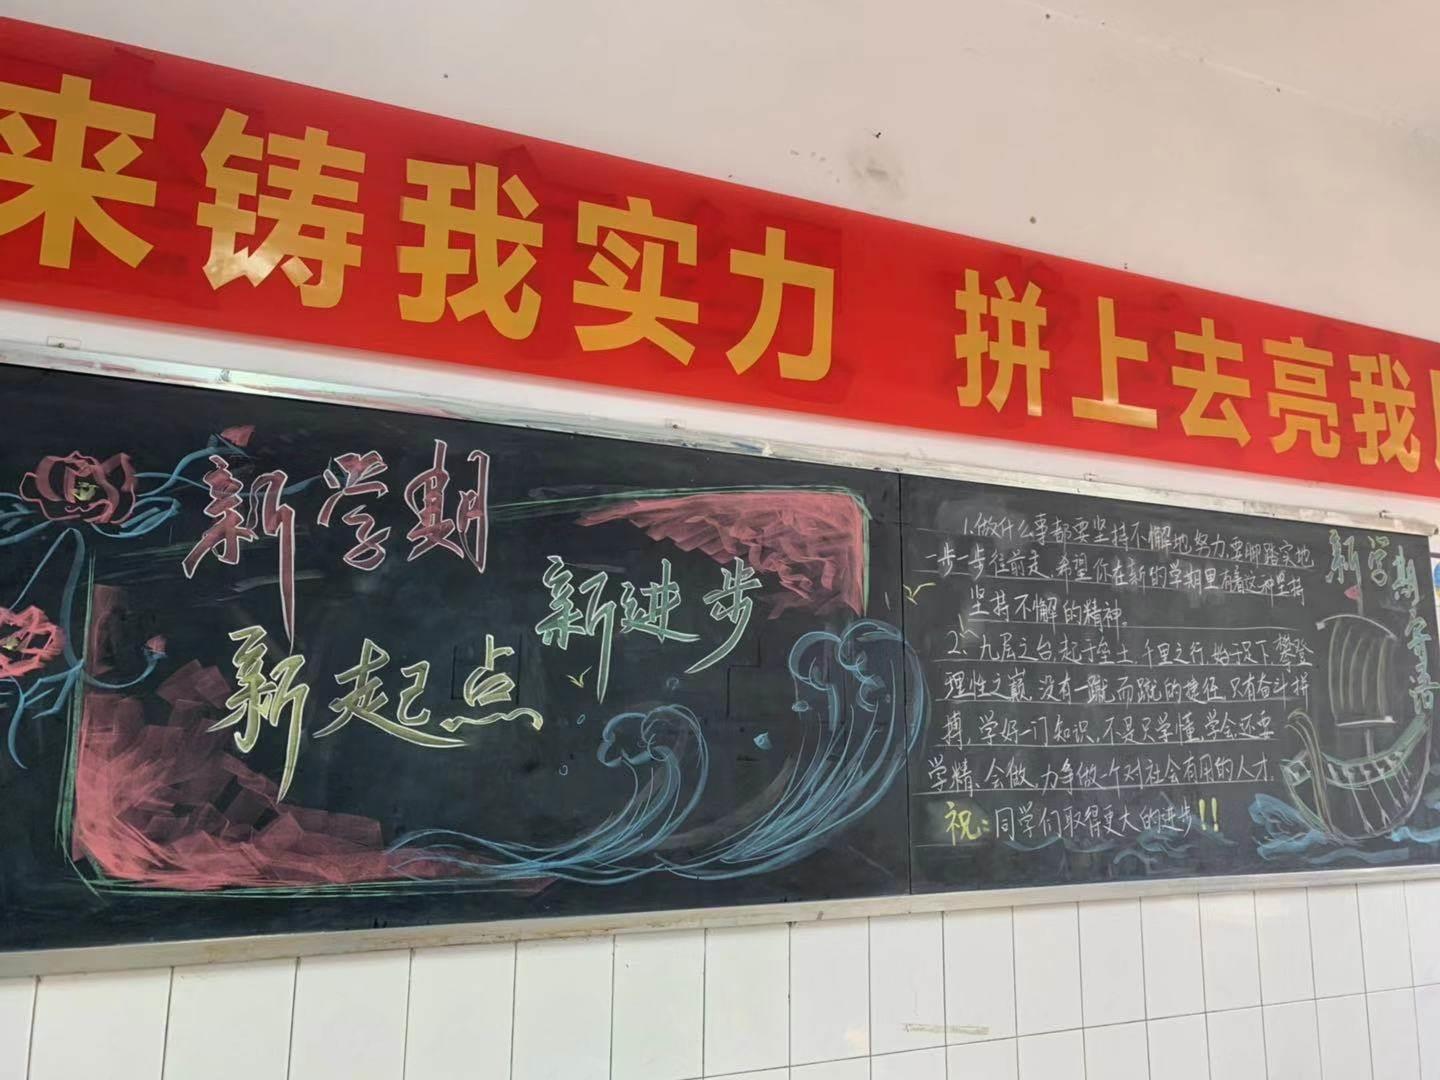 来铸我实力 拼上去亮我
新学期
新起点
新进步
新学期寄语
1.做什么事都要坚持不懈地努力,要脚踏实地
一步一步往前走,希望你在新的学期里有着这种坚持
坚持不懈的精神。
2、九层之台,起于垒土,千里之行,始于足下,攀登
理性之巅,没有一蹴而蹴的捷径,只有奋斗拼
搏,学好一门知识,不是只学懂,学会,还要
学精、会做,力争做一个对社会有用的人才.
祝:同学们取得更大的进步!!